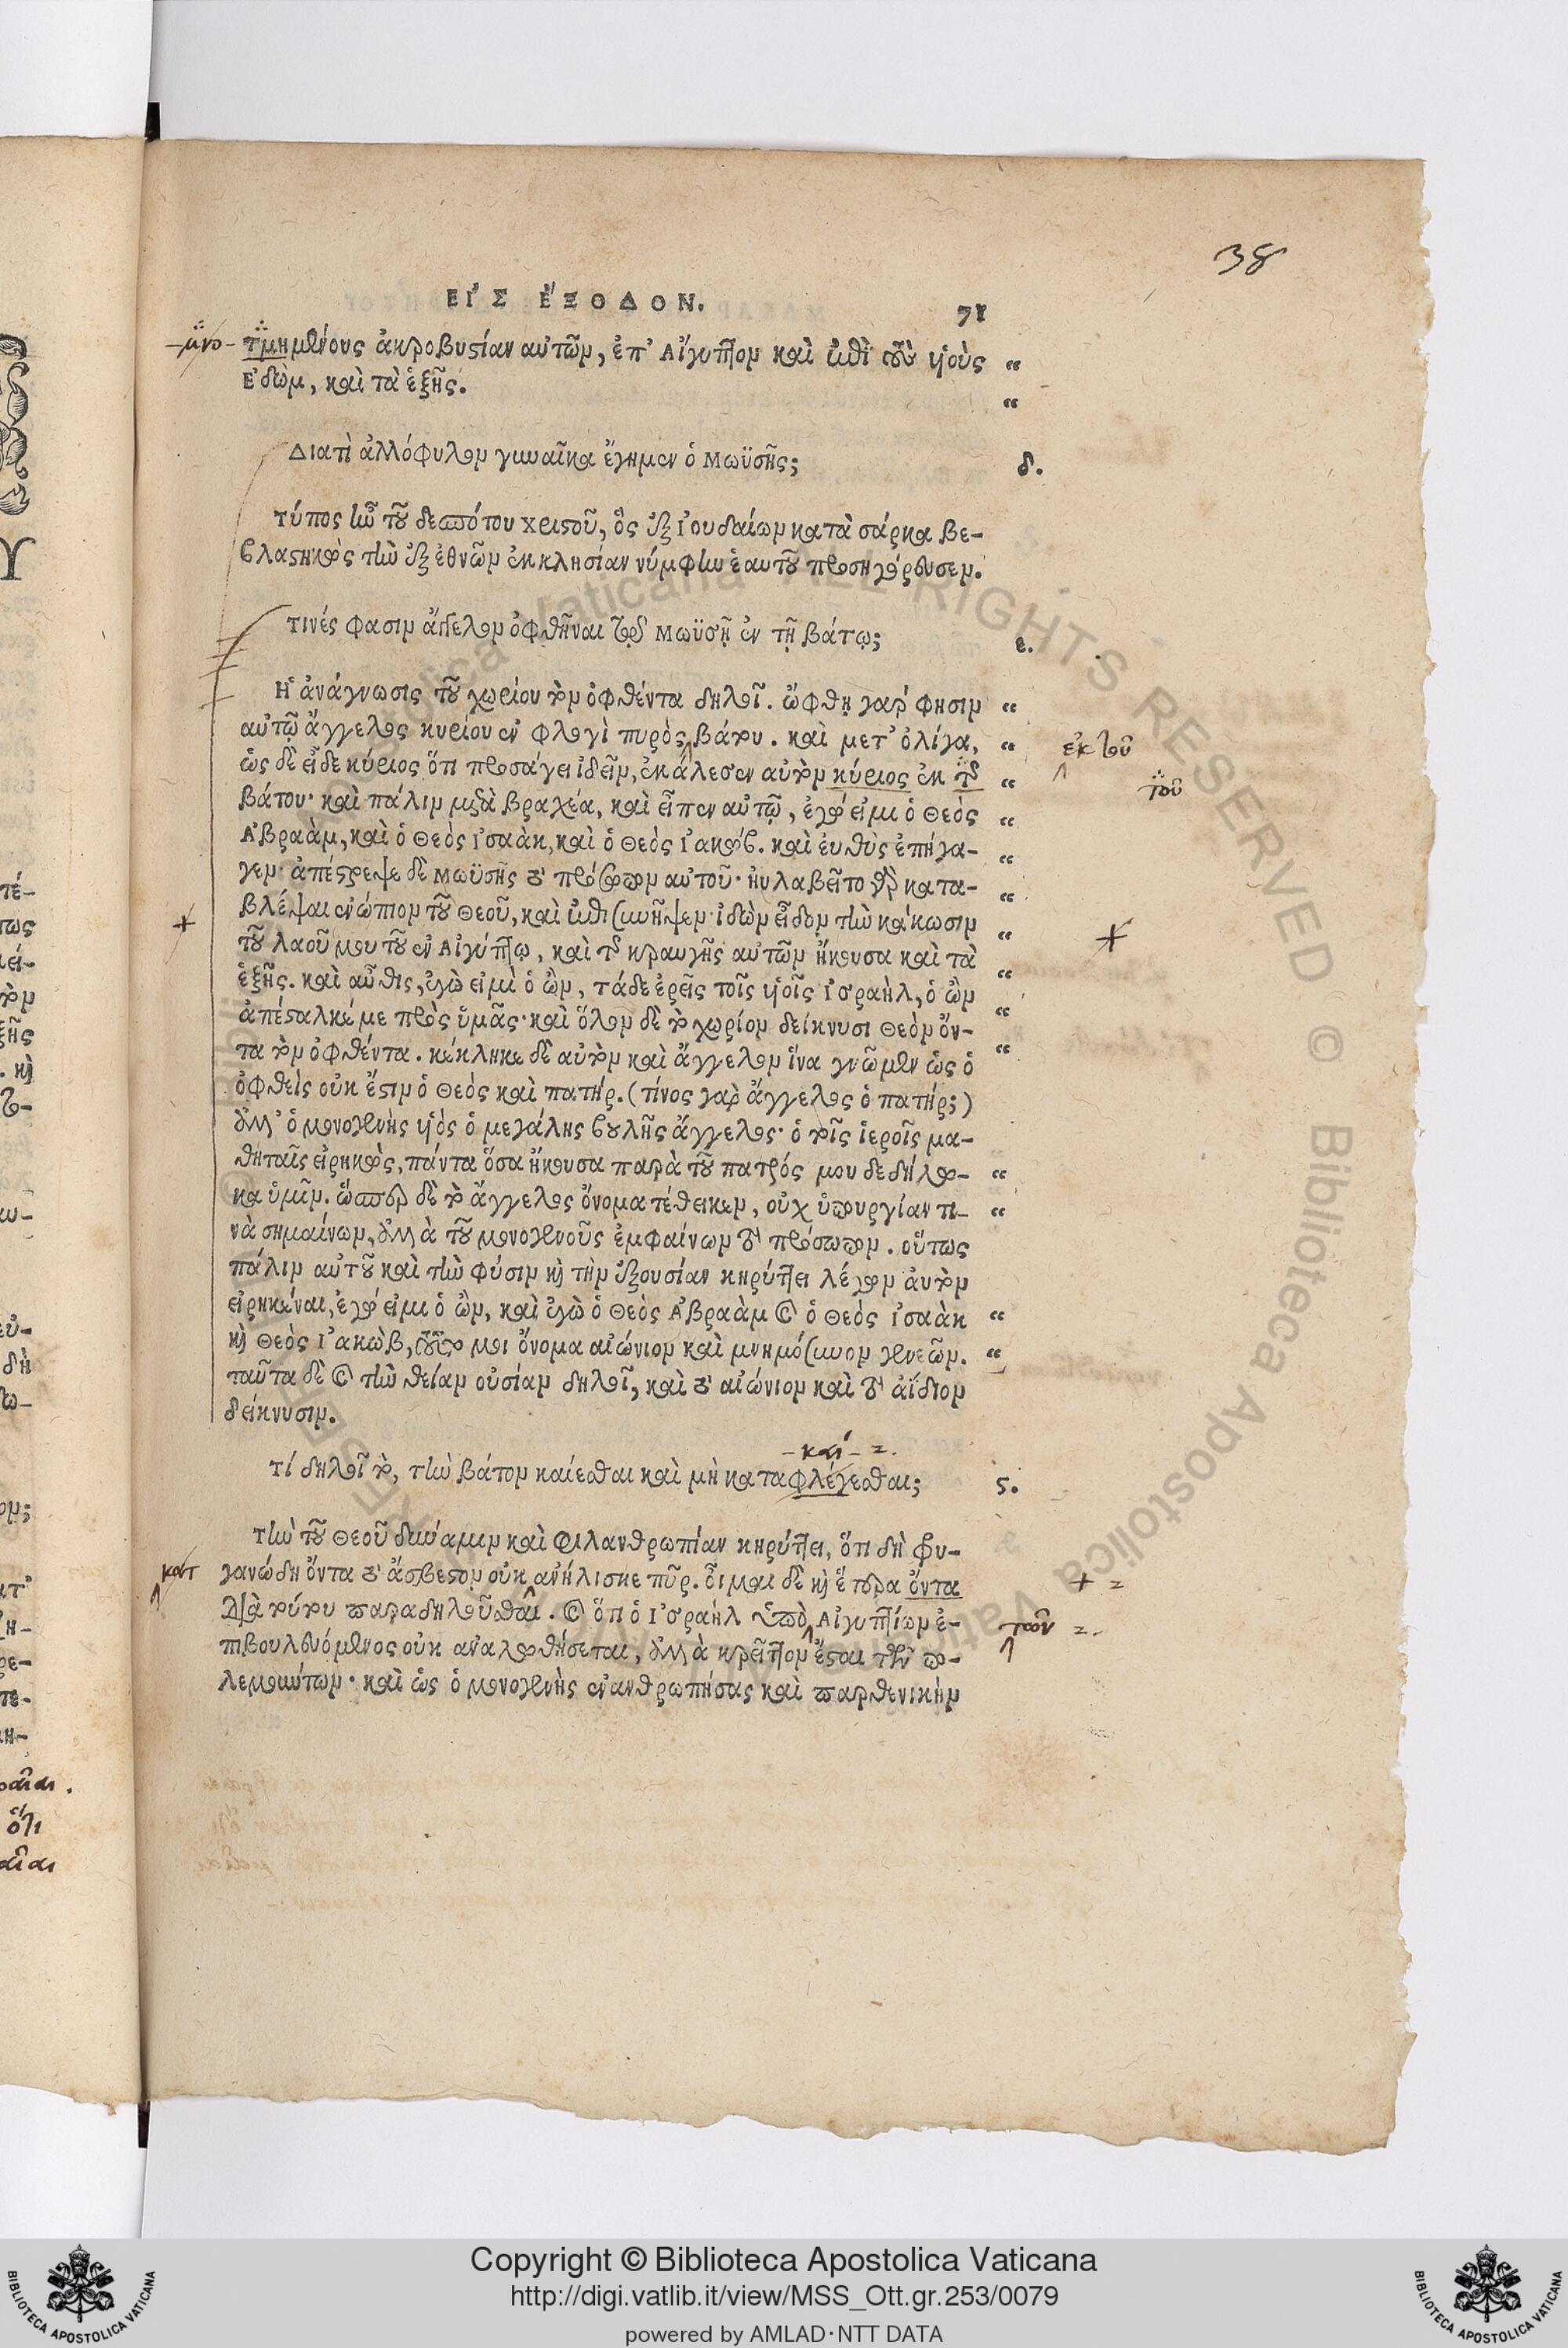 38
ΕΙ᾿Σ ἘΞΟΔΟΝ. 71
τμημένους ἀκροβυστίαν αὐτῶν, ἐπ' Αἴγυπτον καὶ ἐπὶ τοὺς υἱοὺς “
Ἐδὼμ, καὶ τὰ ἑξῆς. “
Διατὶ ἀλλόφυλον γυναῖκα ἔγημεν ὁ Μωϋσῆς; δ.
Τύπος ἦν τοῦ δεσπότου χριστοῦ, ὃς ἐξ Ἰουδαίων κατὰ σάρκα βε-
βλαστηκὼς τὴν ἐξ ἐθνῶν ἐκκλησίαν νύμφην ἑαυτοῦ προσηγόρευσεν.
Τινές φασιν ἄγγελον ὀφθῆναι τῷ Μωϋσῇ ἐν τῇ βάτῳ; ε.
Ἡ ἀνάγνωσις τοῦ χωρίου τὸν ὀφθέντα δηλοῖ. ὤφθη γάρ φησιν “
αὐτῷ ἄγγελος κυρίου ἐν φλογὶ πυρὸς βάτου. καὶ μετ' ὀλίγα, “ ἐκ τοῦ
ὡς δὲ εἶδε κύριος ὅτι προσάγει ἰδεῖν, ἐκάλεσεν αὐτὸν κύριος ἐκ τῆς “ τοῦ
βάτου· καὶ πάλιν μετὰ βραχέα, καὶ εἶπεν αὐτῷ, ἐγώ εἰμι ὁ Θεὸς “
Ἀβραὰμ, καὶ ὁ Θεὸς Ἰσαὰκ, καὶ ὁ Θεὸς Ἰακώβ. καὶ εὐθὺς ἐπήγα- “
γεν· ἀπέστρεψε δὲ Μωϋσῆς τὸ πρόσωπον αὐτοῦ· ηὐλαβεῖτο γὰρ κατα- “
βλέψαι ἐνώπιον τοῦ Θεοῦ, καὶ ἐπισυνῆψεν· ἰδὼν εἶδον τὴν κάκωσιν “
τοῦ λαοῦ μου τοῦ ἐν Αἰγύπτῳ, καὶ τῆς κραυγῆς αὐτῶν ἤκουσα καὶ τὰ “
ἑξῆς. καὶ αὖθις, ἐγὼ εἰμὶ ὁ ὢν, τάδε ἐρεῖς τοῖς υἱοῖς Ἰσραὴλ, ὁ ὢν “
ἀπέσταλκέ με πρὸς ὑμᾶς· καὶ ὅλον δὲ τὸ χωρίον δείκνυσι Θεὸν ὄν- “
τα τὸν ὀφθέντα. κέκληκε δὲ αὐτὸν καὶ ἄγγελον ἵνα γνῶμεν ὡς ὁ
ὀφθεὶς οὐκ ἔστιν ὁ Θεὸς καὶ πατήρ. (τίνος γὰρ ἄγγελος ὁ πατήρ;)
ἀλλ' ὁ μονογενὴς υἱὸς ὁ μεγάλης βουλῆς ἄγγελος· ὁ τοῖς ἱεροῖς μα-
θηταῖς εἰρηκὼς, πάντα ὅσα ἤκουσα παρὰ τοῦ πατρός μου δεδήλω- “
κα ὑμῖν. ὥσπερ δὲ τὸ ἄγγελος ὄνομα τέθεικεν, οὐχ ὑπουργίαν τι- “
νὰ σημαίνων, ἀλλὰ τοῦ μονογενοῦς ἐμφαίνων τὸ πρόσωπον. οὕτως
πάλιν αὐτοῦ καὶ τὴν φύσιν καὶ τὴν ἐξουσίαν κηρύττει λέγων αὐτὸν
εἰρηκέναι, ἐγώ εἰμι ὁ ὢν, καὶ ἐγὼ ὁ Θεὸς Ἀβραὰμ καὶ ὁ Θεὸς Ἰσαὰκ “
καὶ Θεὸς Ἰακὼβ, τοῦτό μοι ὄνομα αἰώνιον καὶ μνημόσυνον γενεῶν. “
ταῦτα δὲ καὶ τὴν θείαν οὐσίαν δηλοῖ, καὶ τὸ αἰώνιον καὶ τὸ ἀΐδιον
δείκνυσιν.
Τί δηλοῖ τὸ, τὴν βάτον καίεσθαι καὶ μὴ καταφλέγεσθαι; ς.
Τὴν τοῦ Θεοῦ δύναμιν καὶ φιλανθρωπίαν κηρύττει, ὅτι δὴ φρυ-
γανώδη ὄντα τὸ ἄσβεστον οὐκ ἀνήλισκε πῦρ. οἶμαι δὲ καὶ ἕτερα ὄντα
διὰ τούτου παραδηλοῦσθαι. καὶ ὅτι ὁ Ἰσραὴλ ὑπὸ Αἰγυπτίων ἐ- τῶν
πιβουλευόμενος οὐκ ἀναλωθήσεται, ἀλλὰ κρεῖττον ἔσται τῶν πο-
λεμούντων· καὶ ὡς ὁ μονογενὴς ἐνανθρωπήσας καὶ παρθενικὴν
Copyright © Biblioteca Apostolica Vaticana
http://digi.vatlib.it/view/MSS_Ott.gr.253/0079
powered by AMLAD·NTT DATA